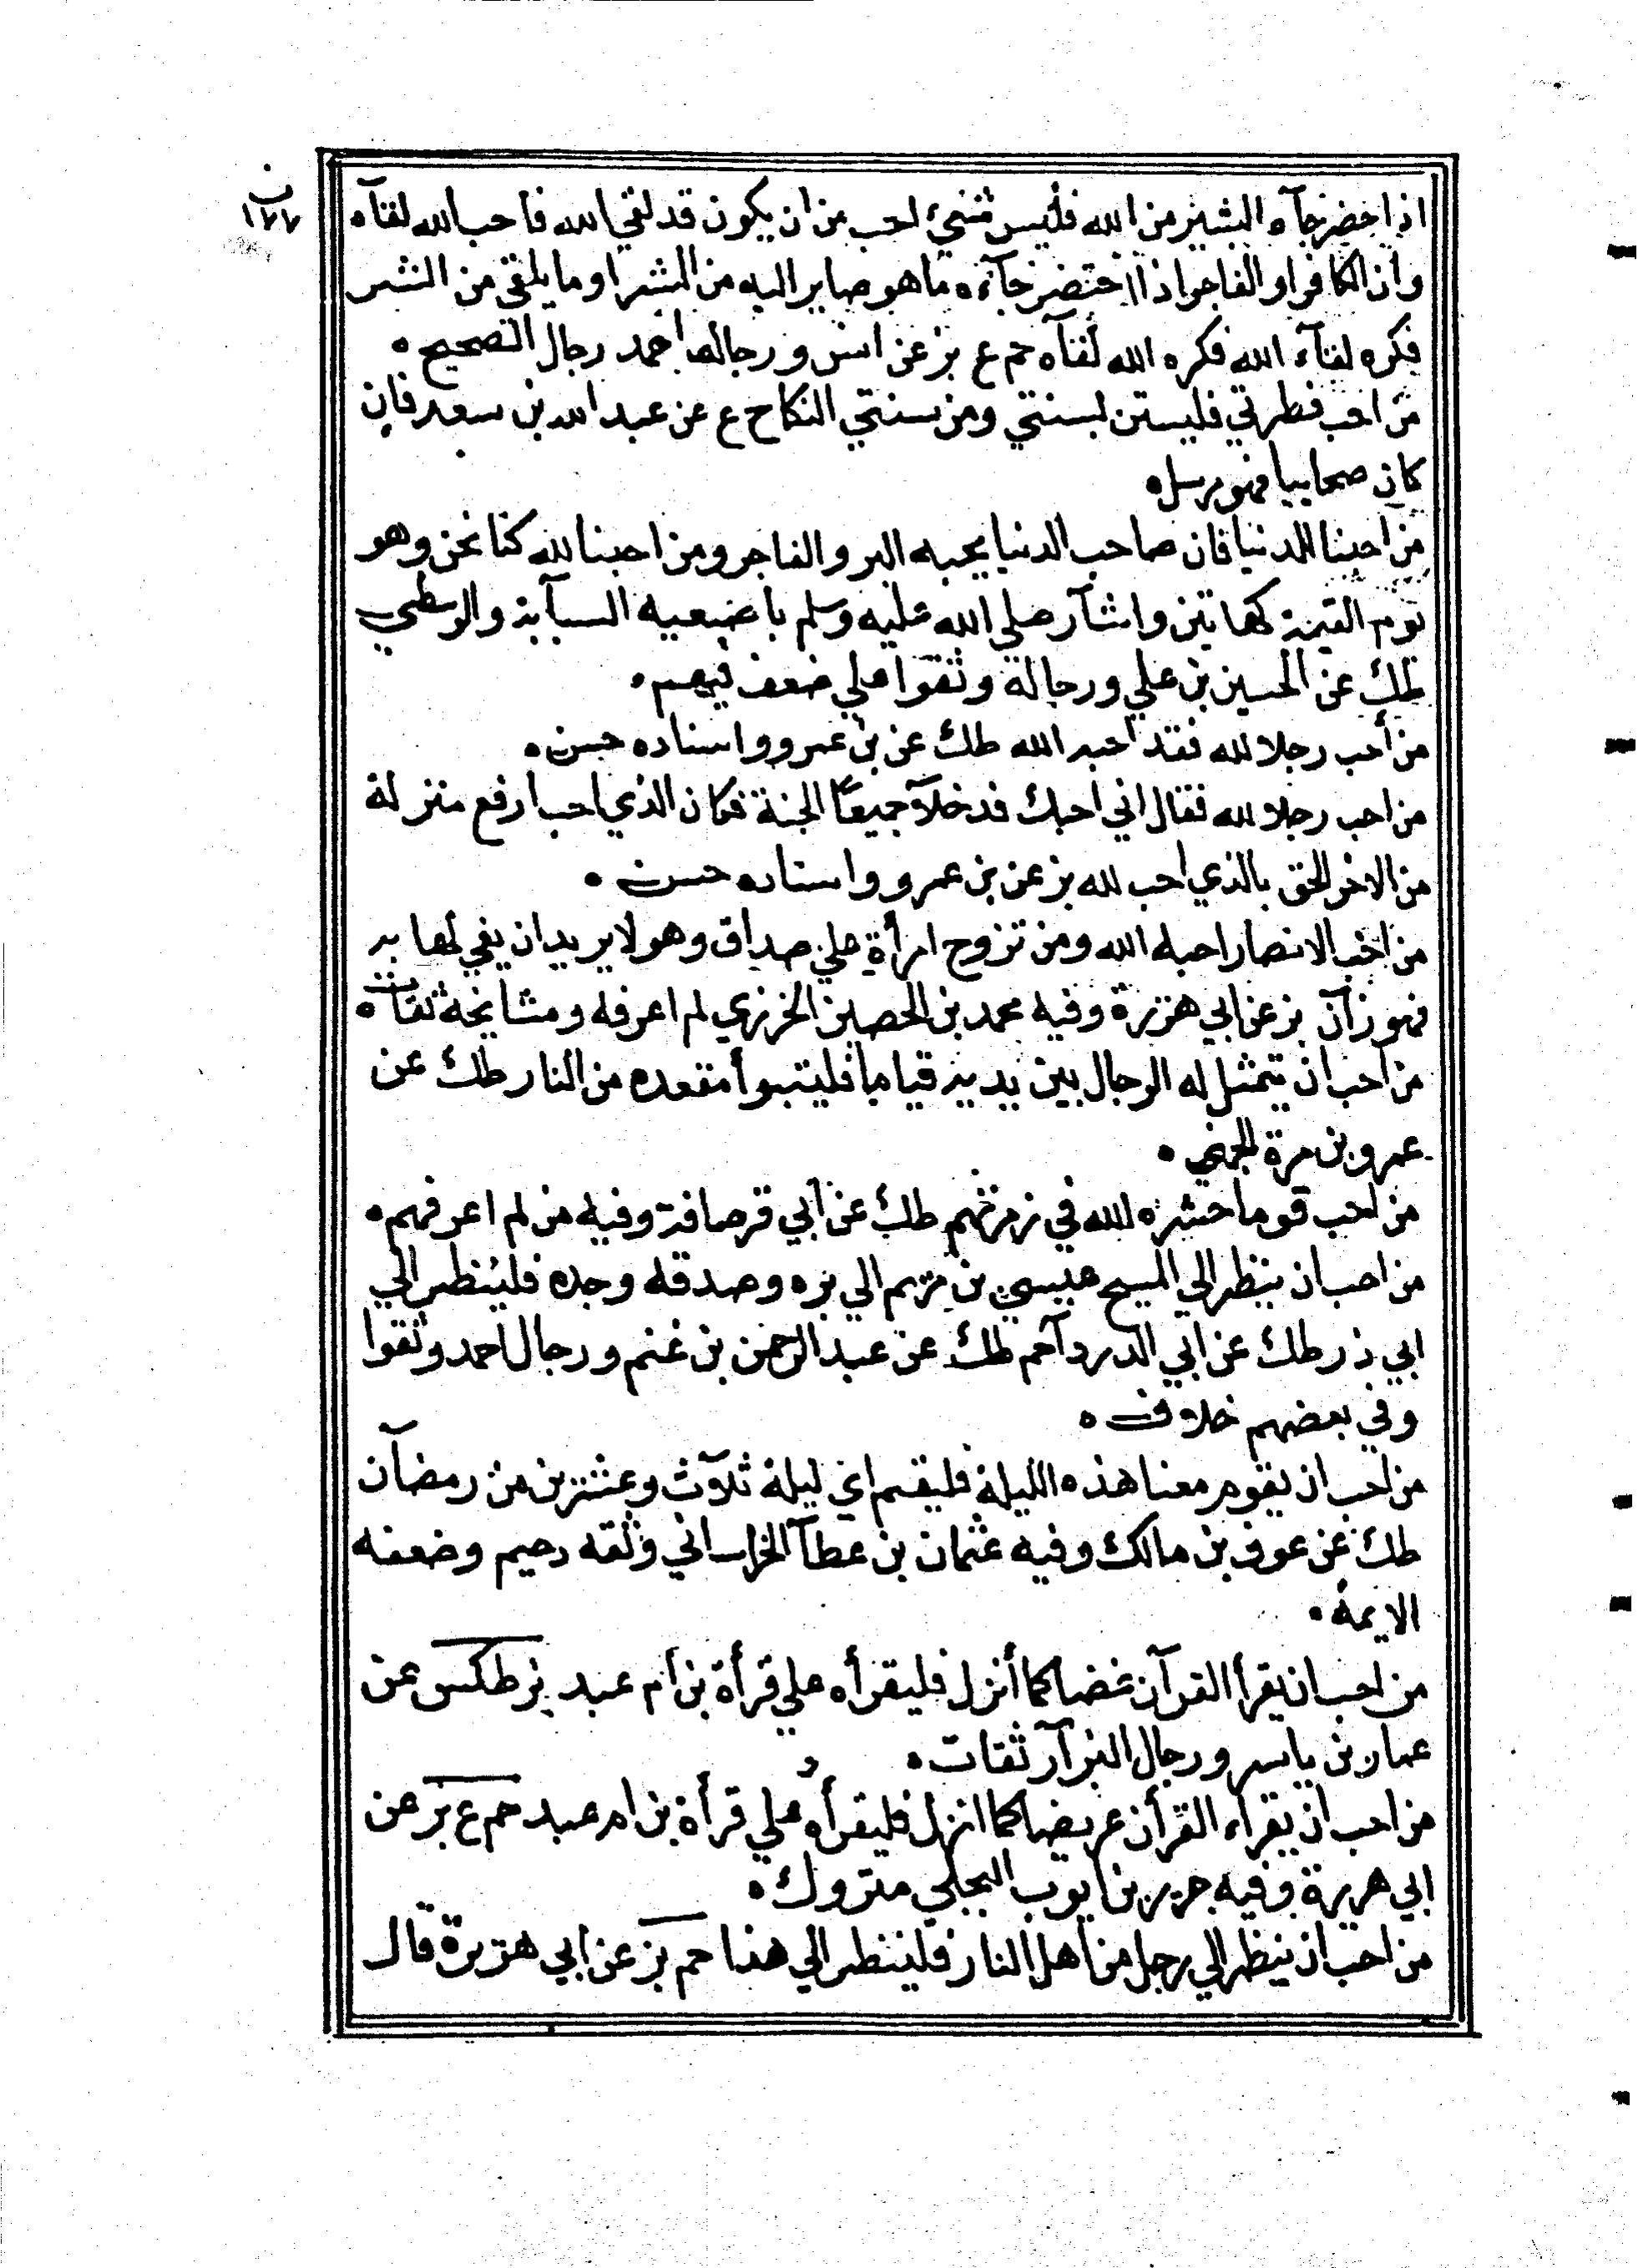 اذا حضر جآه البشير من الله فليس شيئ احب من ان يكون قد لقي الله فاحب الله لقآه
وان الكافر او الفاجر اذا احتضر جآءه ما هو صاير اليه من الشر او ما يلقى من الشر
فكره لقآء الله فكره الله لقآه حم ع بز عن انس ورجال احمد رجال الصحيح ه
من احب فطرتي فليستن بسنتي ومن سنتي النكاح ع عن عبد الله بن سعد فان
كان صحابيا فهو مرسل ه
من احبنا للدنيا فان صاحب الدنيا يحبه البر والفاجر ومن احبنا لله كنا نحن وهو
يوم القيمة كهاتين واشآر صلي الله عليه وسلم باصبعيه السبآبة والوسطي
طك عن الحسين بن علي ورجاله وثقوا علي ضعف فيهم ه
من أحب رجلا لله فقد احبه الله طك عن بن عمرو واسناده حسن ه
من احب رجلا لله فقال اني احبك فدخلآ جميعًا الجنة فكان الذي احب ارفع منزلة
من الاخر الحق بالذي احب لله بز عن بن عمرو واسناده حسن ه
من احب الانصار احبه الله ومن تزوج امرأة علي صداق وهو لا يريد ان يفي لها به
فهو زآن بز عن ابي هريرة وفيه محمد بن الحصين الخرزي لم اعرفه ومشايخه ثقآت ه
من احب ان يتمثل له الرجال بين يديه قياما فليتبوأ مقعده من النار طك عن
عمرو بن مرة الجهني ه
من احب قوما حشره الله في زمرتهم طك عن أبي قرصافة وفيه من لم اعرفهم ه
من احب ان ينظر الي المسيح عيسي بن مريم الي بره وصدقه وجده فلينظر الي
ابي ذر طك عن ابي الدردآ حم طك عن عبد الرحمن بن غنم ورجال احمد وثقوا
وفي بعضهم خلاف ه
من احب ان يقوم معنا هذه الليلة فليقم اي ليلة ثلآث وعشرين من رمضآن
طك عن عوف بن مالك وفيه عثمان بن عطآ الخراساني وثقه دحيم وضعفه
الايمة ه
من احب ان يقرأ القرآن غضا كما أنزل فليقرأه علي قرأة بن أم عبد بز طكس عن
عمار بن ياسر ورجال البزآر ثقات ه
من احب ان يقراء القرأن غريضا كما انزل فليقرأه علي قرأة بن ام عبد حم ع بز عن
ابي هريرة وفيه جرير بن ايوب البجلي متروك ه
من احب ان ينظر الي رجل من أهل النار فلينظر الي هذا حم بز عن ابي هريرة قال